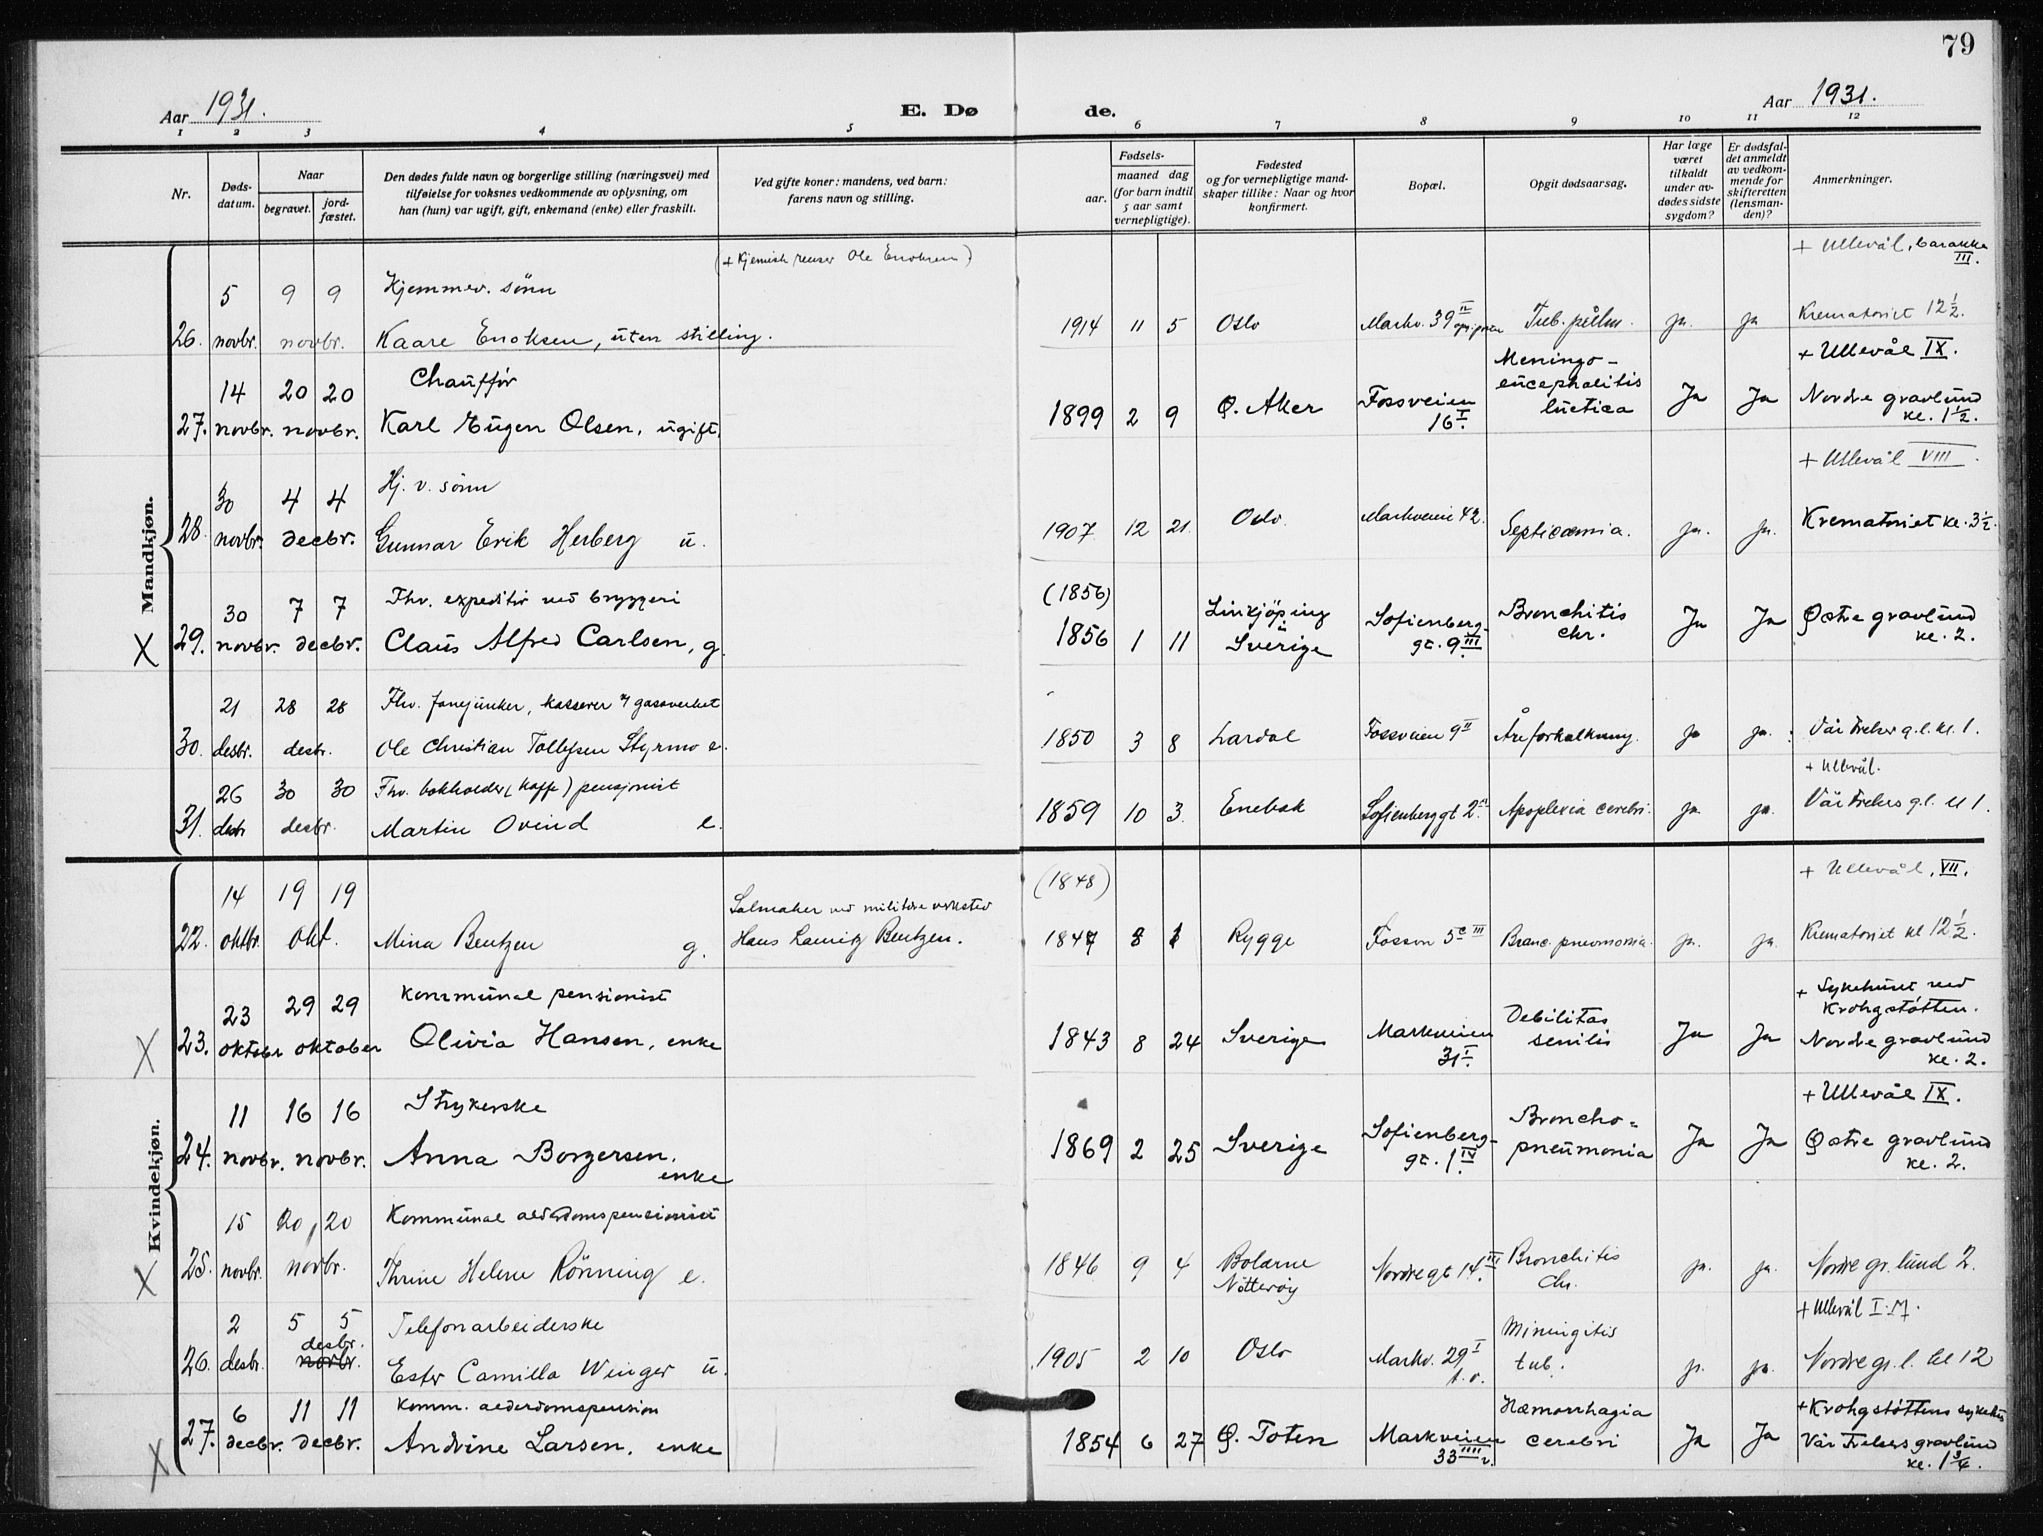 79
Aar 1931.
E. Dø de.
Aar 1931.
1 2 3 4 5 6 7 8 9 10 11 12
Nr.
Døds-
datum.
Naar
begravet.
jord-
fæstet.
Den dødes fulde navn og borgerlige stilling (næringsvei) med
tilføielse for voksnes vedkommende av oplysning, om
han (hun) var ugift, gift, enkemand (enke) eller fraskilt.
Ved gifte koner: mandens, ved barn:
farens navn og stilling.
Fødsels-
aar.
maaned dag
(for barn indtil
5 aar samt
vernepligtige).
Fødested
og for vernepligtige mand-
skaper tillike: Naar og hvor
konfirmert.
Bopæl.
Opgit dødsaarsag.
Har læge
været
tilkaldt
under av-
dødes sidste
sygdom?
Er dødsfal-
det anmeldt
av vedkom-
mende for
skifteretten
(lensman-
den)?
Anmerkninger.
Mandkjøn.
(+ Kjemisk renser Ole Enoksen) + Ullevål, barakke III.
5 9 9 Hjemmev. sønn
26. novbr. novbr. Kaare Enoksen, uten stilling. 1914 11 5 Oslo Markv. 39 II Tub. pulm. ja. ja Krematoriet 12 1/2.
14 20 20 Chauffør Meningo- + Ullevål IX.
27. novbr. novbr. Karl Eugen Olsen, ugift. 1899 2 9 Ø. Aker Fossveien 16 I. encephalitis luetica Ja Ja Nordre gravlund kl. 1 1/2.
30 4 4 Hj. v. sønn + Ullevål VIII.
28. novbr. decbr. Gunnar Erik Herberg u. 1907 12 21 Oslo. Markveien 42. Septicæmia. ja. ja. Krematoriet kl. 3 1/2.
30 7 7 Fhv. expeditør ved bryggeri (1856) Linkjöping
X 29. novbr. decbr. Claus Alfred Carlsen, g. 1856 1 11 Sverige Sofienberg- gt. 9 III. Bronchitis chr. Ja Ja Østre gravlund kl. 2.
21 28 28 Fhv. fanejunker, kasserer v/ gasverket
30. desbr. desbr. Ole Christian Tollefsen Styrmo e. 1850 3 8 Lardal Fossveien 9 II Åreforkalkning. ja ja. Vår Frelser g.l. kl. 1.
26 30 30 Fhv. bokholder (kaffe) pensjonist + Ullevål.
31. desbr. desbr. Martin Ovind e. 1859 10 3. Enebak Sofienberggt 2. Apoplexia cerebri. ja. ja. Vår Frelsers g.l. kl 1.
Kvindekjøn.
14 19 19 Salmaker ved militære verksted (1848) + Ullevål, VII.
22. oktbr. okt. Mina Bentzen g. Hans Lauritz Bentzen. 1847 8 1 Rygge Fossvn 5 c III Bronc. pneumonia. ja. ja. Krematoriet kl 12 1/2.
23 29 29 Kommunal pensionist + Sykehuset ved Krohgstøtten.
X 23. oktober oktober Olivia Hansen, enke 1843 8 24 Sverige Markveien 31 I. Debilitas senilis Ja Ja Nordre gravlund kl. 2.
11 16 16 Strykerske + Ullevål IX.
24. novbr. novbr. Anna Borgersen. enke 1869 2 25 Sverige Sofienberg- gt. 1 IV. Broncho= pneumonia Ja Ja Østre gravlund kl. 2.
15 20 20 Kommunal alderdomspensionist
X 25. novbr. novbr. Thrine Helene Rönning e. 1846 9 4 Bolærne Nötteröy Nordregt 14 III. Bronchitis chr. ja. ja. Nordre gr. lund 2.
2 5 5 Telefonarbeiderske + Ullevål I. M.
desbr.
26. desbr. novbr. Ester Camilla Winger u. 1905 2 10 Oslo Markv. 29 I t. v. Miningitis tub. ja. ja. Nordre gr. l. kl 12
6 11 11 Komm. alderdomspension + Krohgstøttens sykehus
X 27. decbr. decbr. Andrine Larsen, enke 1854 6 27 Ø. Toten Markveien 33 IIII v. Hæmorrhagia cerebri Ja Ja Vår Frelsers gravlund kl. 1 3/4.